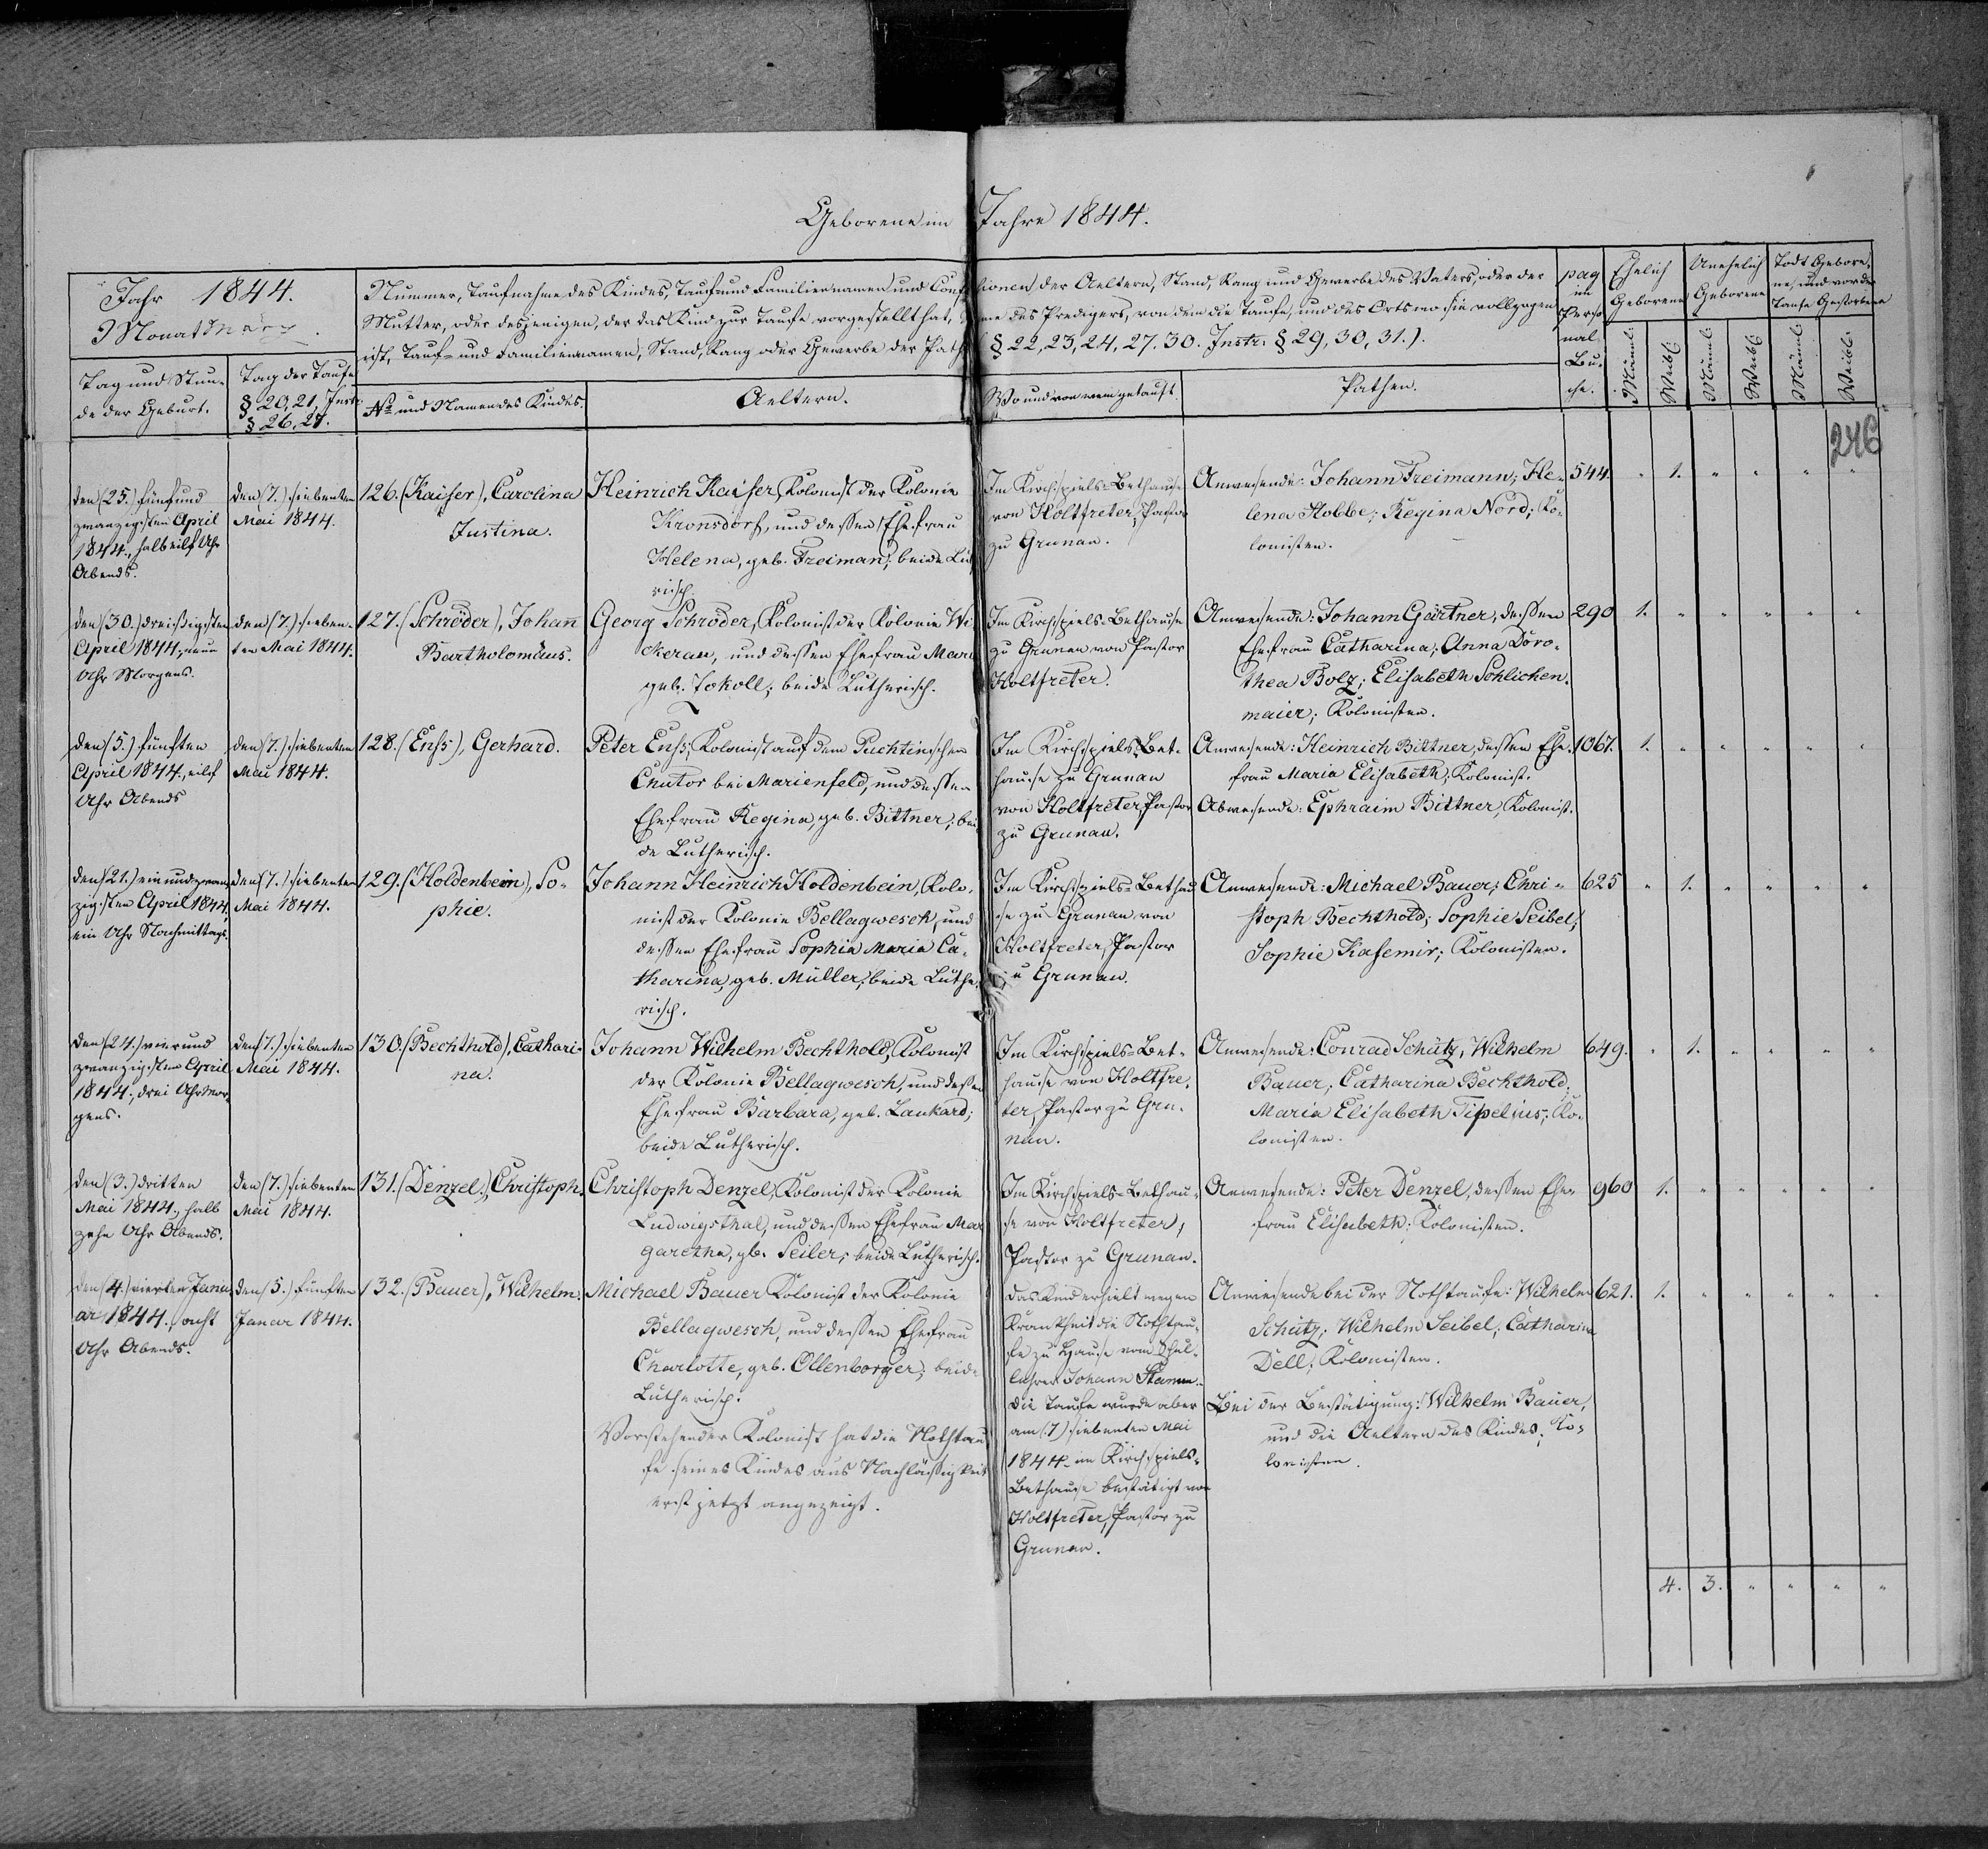 Geborene im Jahre 1844.
Jahr 1844.
Monat März.
Nummer, Taufnahme des Kindes, Tauf und Familiennamen und Conf
Mutter, oder desjenigen, der das Kind zur Taufe vorgestellt hat,
ist, Tauf- und Familiennamen, Stand, Rang oder Gewerbe der Path
ionen der Aeltern, Stand, Rang und Gewerbe des Vaters, oder der
me des Predigers, von dem die Taufe, und des Orts wo sie vollzogen
§ 22, 23, 24, 27. 30. Instr. § 29, 30, 31.).
pag
im
Perso
nal-
Bu-
che.
Ehelich
Geborene
Unehelich
Geborene
Todt Gebore-
ne, und vor der
Taufe Gestorbene
Männl.
Weibl.
Männl.
Weibl.
Männl.
Weibl.
Tag und Stun-
de der Geburt.
Tag der Taufe
§ 20, 21, Instr.
§ 26, 27.
No und Namen des Kindes.
Aeltern.
Wo und von wem getauft.
Pathen.
246
den (25.) fünf und
zwanzigsten April
1844., halb eilf Uhr
Abends.
den (7.) siebenten
Mai 1844.
126. (Kaiser), Carolina
Justina.
Heinrich Kaiser, Kolonist der Kolonie
Kronsdorf, und dessen Ehefrau
Helena, geb. Freiman; beide Lu
risch.
Im Kirchspiels-Bethause
von Holtfreter, Pastor
zu Grunau.
Anwesende: Johann Freimann; He-
lena Hobbe; Regina Nord; Ko-
lonisten.
544. " 1. " " " "
den (30.) dreißigsten
April 1844., neun
Uhr Morgens.
den (7.) sieben-
ten Mai 1844.
127. (Schröder), Johann
Bartholomäus.
Georg Schröder, Kolonist der Kolonie Wi
ckerau, und dessen Ehefrau Mari
geb. Jokoll; beide Lutherisch.
Im Kirchspiels-Bethause
zu Grunau von Pastor
Holtfreter.
Anwesende: Johann Gärtner, dessen
Ehefrau Catharina; Anna Doro-
thea Bolz; Elisabeth Schlichen-
maier; Kolonisten.
290 1. " " " " "
den (5.) fünften
April 1844., eilf
Uhr Abends
den (7.) siebenten
Mai 1844.
128. (Enss), Gerhard.
Peter Enss, Kolonist auf dem Puchtinschen
Chutor bei Marienfeld, und dessen
Ehefrau Regina, geb. Bittner; bei
de Lutherisch.
Im Kirchspiels-Bet-
hause zu Grunau
von Holtfreter, Pastor
zu Grunau.
Anwesende: Heinrich Bittner, dessen Ehe-
frau Maria Elisabeth; Kolonist.
Abwesende: Ephraim Bittner, Kolonist.
1067. 1. " " " " "
den (21.) ein und zwan-
zigsten April 1844.
ein Uhr Nachmittags.
den (7.) siebenten
Mai 1844.
129. (Holdenbein), So-
phie.
Johann Heinrich Holdenbein, Kolo-
nist der Kolonie Bellagwesch, und
dessen Ehefrau Sophia Maria Ca-
tharina, geb. Müller; beide Luthe-
risch.
Im Kirchspiels-Bethau
se zu Grunau von
Holtfreter, Pastor
zu Grunau.
Anwesende: Michael Bauer; Chri-
stoph Bechthold; Sophie Seibel;
Sophie Kasemir; Kolonisten.
625 " 1. " " " "
den (24.) vier und
zwanzigsten April
1844., drei Uhr Mor-
gens.
den (7.) siebenten
Mai 1844.
130. (Bechthold), Cathari-
na.
Johann Wilhelm Bechthold, Kolonist
der Kolonie Bellagwesch, und dessen
Ehefrau Barbara, geb. Laukard;
beide Lutherisch.
Im Kirchspiels-Bet-
hause von Holtfre-
ter, Pastor zu Gru-
nau.
Anwesende: Conrad Schütz; Wilhelm
Bauer; Catharina Bechthold;
Maria Elisabeth Tipelius; Ko-
lonisten.
649. " 1. " " " "
den (3.) dritten
Mai 1844., halb
zehn Uhr Abends.
den (7.) siebenten
Mai 1844.
131. (Denzel), Christoph.
Christoph Denzel, Kolonist der Kolonie
Ludwigsthal, und dessen Ehefrau Mar
garetha, gb. Seiler; beide Lutherisch.
Im Kirchspiels-Bethau-
se von Holtfreter,
Pastor zu Grunau.
Anwesende: Peter Denzel, dessen Ehe-
frau Elisabeth; Kolonisten.
960 1. " " " " "
den (4.) vierten Janu
ar 1844., acht
Uhr Abends.
den (5.) fünften
Januar 1844.
132. (Bauer), Wilhelm.
Michael Bauer Kolonist der Kolonie
Bellagwesch, und dessen Ehefrau
Charlotte, geb. Ollenborger; beide
Lutherisch.
Vorstehender Kolonist hat die Nothtau
fe seines Kindes aus Nachlässigkeit
erst jetzt angezeigt.
Das Kind erhielt wegen
Krankheit die Nothtau-
fe zu Hause vom Schul-
lehrer Johann Stamm.
Die Taufe wurde aber
am (7) siebenten Mai
1844. im Kirchspiels-
Bethause bestätigt von
Holtfreter, Pastor zu
Grunau.
Anwesende bei der Nothtaufe: Wilhelm
Schütz; Wilhelm Seibel; Catharina
Dell; Kolonisten.
Bei der Bestätigung: Wilhelm Bauer,
und die Aeltern des Kindes; Ko-
lonisten.
621. 1. " " " " "
4. 3. " " " "